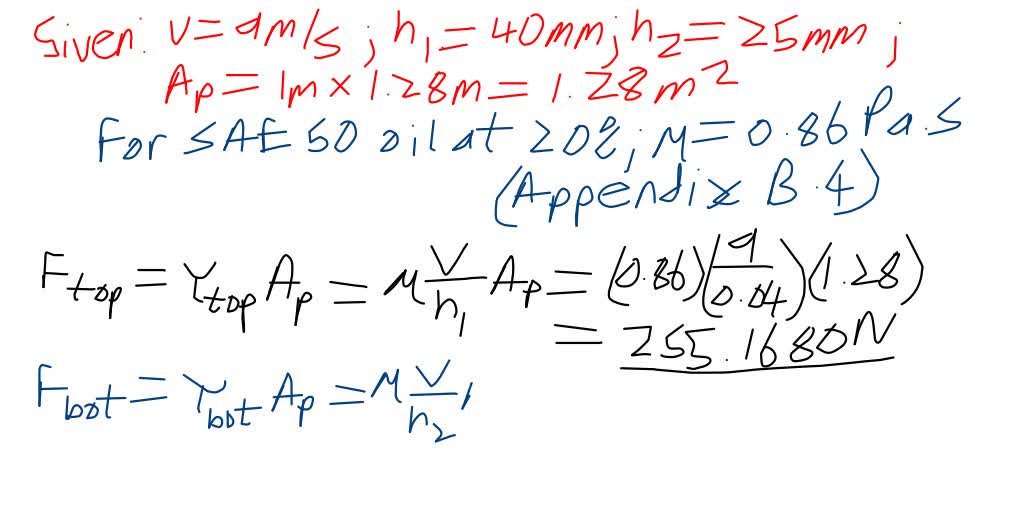 Given: V = 9m/s ; h₁ = 40mm; h₂ = 25mm ;
Ap = 1m × 1.28m = 1.28m²
For SAE 50 oil at 20%; M = 0.86 Pa.s
(Appendix B.4)
F top = τ top Ap = M V/h₁ Ap = (0.86)(9/0.04)(1.28)
= 255.1680N
F bot = τ bot Ap = M V/h₂